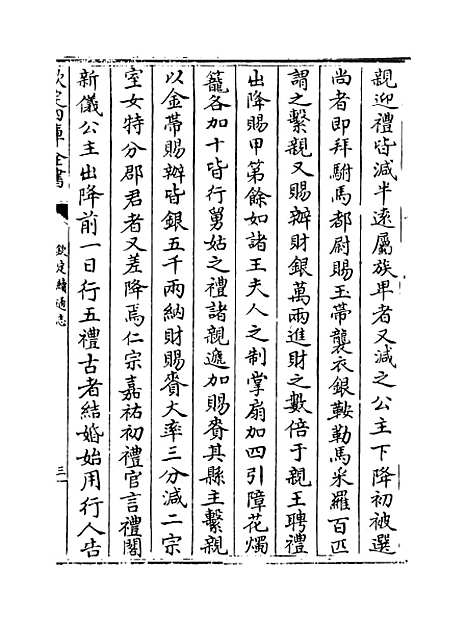 親迎禮皆减半遠屬族卑者又减之公主下降初被選
尚者即拜駙馬都尉賜玉帶襲衣銀鞍勒馬采羅百匹
謂之繫親又賜辦財銀萬兩進財之數倍于親王聘禮
出降賜甲第餘如諸王夫人之制掌扇加四引障花燭
籠各加十皆行舅姑之禮諸親遞加賜賚其縣主繫親
以金帶賜辦皆銀五千兩納財賜賚大率三分减二宗
室女特分郡君者又差降焉仁宗嘉祐初禮官言禮閣
新儀公主出降前一日行五禮古者結婚始用行人告
欽定四庫全書
欽定續通志
三